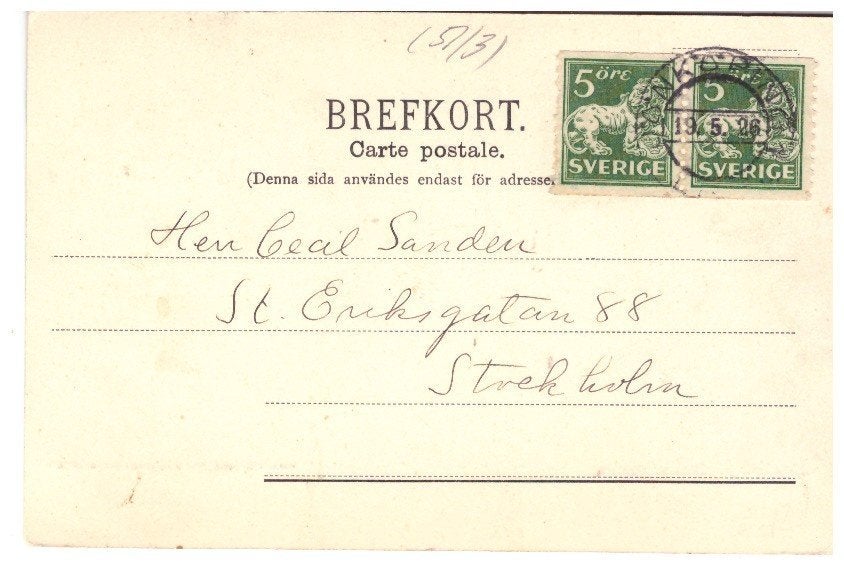 (51/3)
5 öre 5 öre
BREFKORT.
19.5.26
Carte postale.
SVERIGE SVERIGE
(Denna sida användes endast för adresse
Herr Cecil Sanden
St. Eriksgatan 88
Stockholm